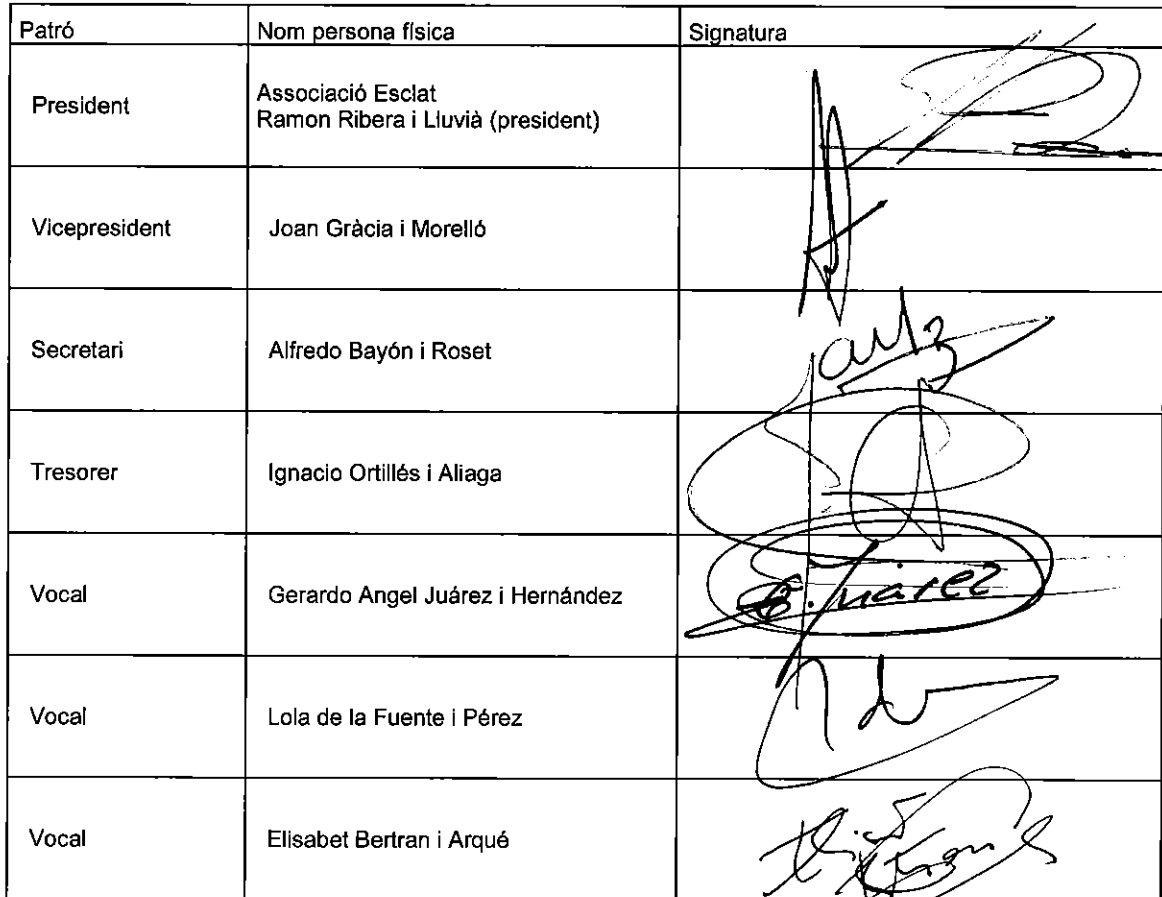 Patró Nom persona física Signatura
President Associació Esclat
Ramon Ribera i Lluvià (president)
Vicepresident Joan Gràcia i Morelló
Secretari Alfredo Bayón i Roset
Tresorer Ignacio Ortillés i Aliaga
Vocal Gerardo Angel Juárez i Hernández G. Juárez
Vocal Lola de la Fuente i Pérez
Vocal Elisabet Bertran i Arqué